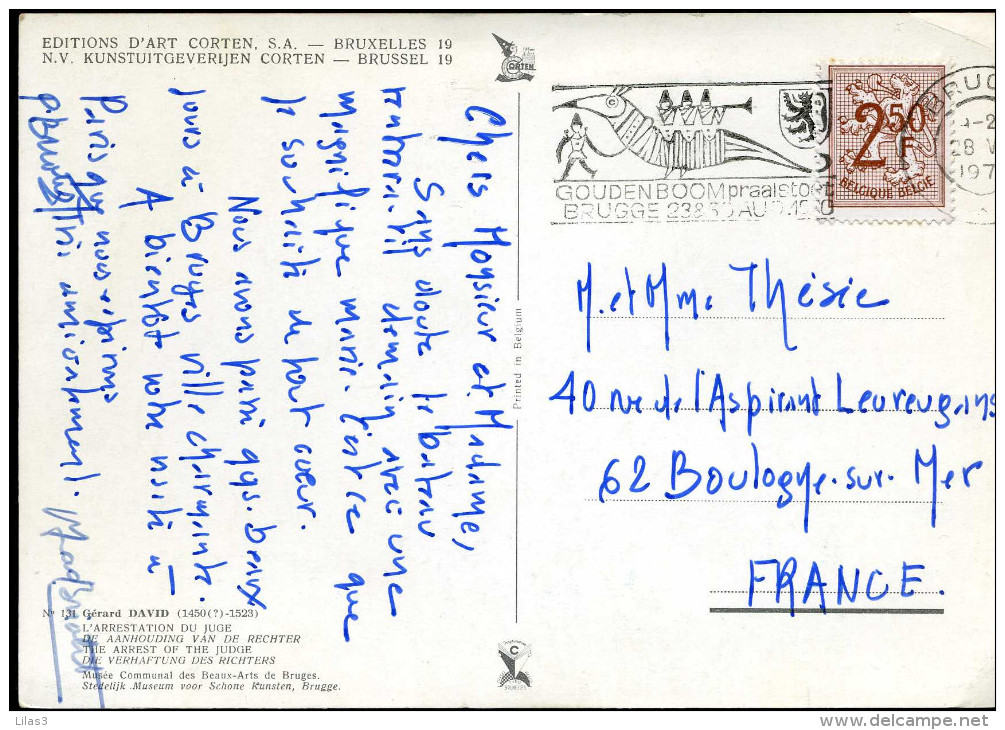 EDITIONS D'ART CORTEN, S.A. — BRUXELLES 19
N.V. KUNSTUITGEVERIJEN CORTEN — BRUSSEL 19
CORTEN
GOUDENBOOMpraalstoet
BRUGGE 23&30 AUG.1970
BRUG
28 V
197
2,50 F
BELGIQUE-BELGIË
Chers Monsieur et Madame,
Sans doute le bateau
rentrera-t-il demain avec une
magnifique marée. C'est ce que
je souhaite de tout cœur.
Nous avons passé qqs. beaux
jours à Bruges, ville charmante.
A bientôt votre visite à
Paris que nous espérons
Très amicalement.
Printed in Belgium
M. et Mme Thésie
40 rue de l'Aspirant
62 Boulogne-sur-Mer
FRANCE.
Nº 131 Gérard DAVID (1450(?)-1523)
L'ARRESTATION DU JUGE
DE AANHOUDING VAN DE RECHTER
THE ARREST OF THE JUDGE
DIE VERHAFTUNG DES RICHTERS
Musée Communal des Beaux-Arts de Bruges.
Stedelijk Museum voor Schone Kunsten, Brugge.
C
BRUXELLES
Lilas3
http://www.delcampe.net